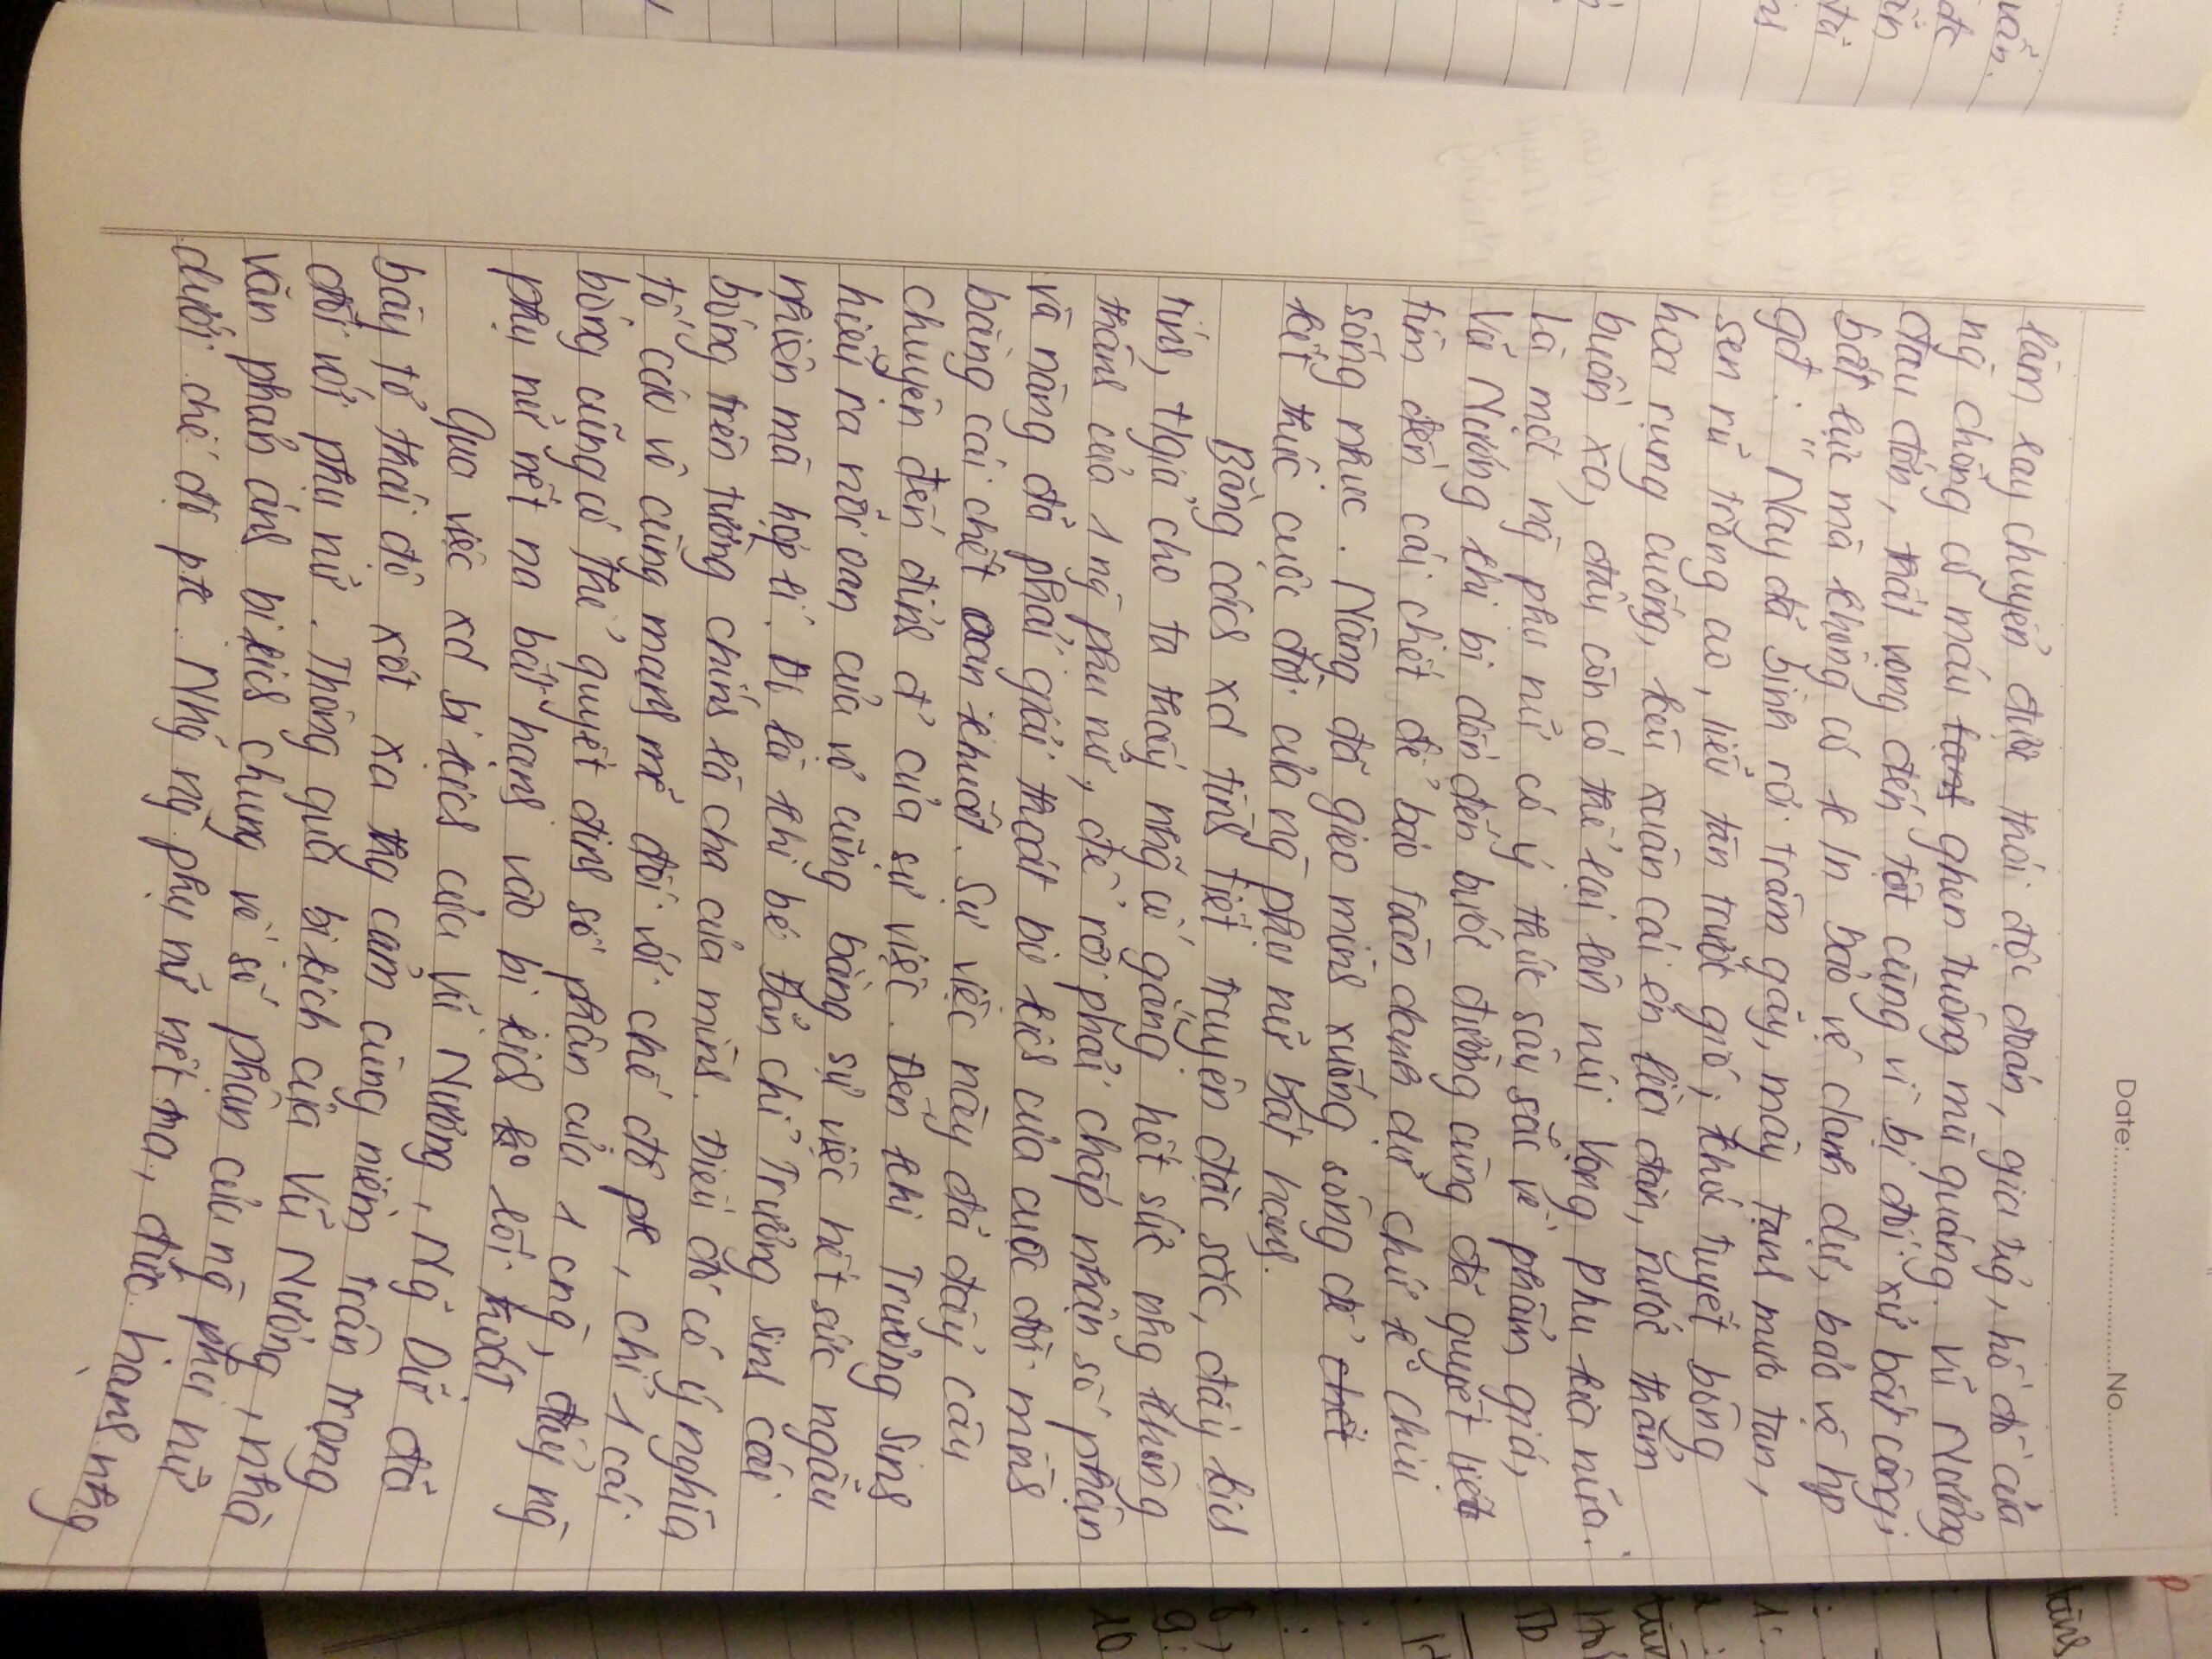 Date: No
làm lay chuyển được thói độc đoán, gia trg, hồ đồ của
ng chồng có máu ghen tuông mù quáng. Vũ Nương
đau đớn, thất vọng đến tột cùng vì bị đối xử bất công,
bất lực mà không có k/n bảo vệ danh dự, bảo vệ hp
gđ: "Nay đã bình rơi trâm gãy, mây tạnh mưa tan,
sen rũ trong ao, liễu tàn trước gió; khóc tuyết bông
hoa rụng cuống, kêu xuân cái én lìa đàn, nước thẳm
buồm xa, đâu còn có thể lại lên núi Vọng Phu kia nữa.
Là một ng phụ nữ có ý thức sâu sắc về phẩm giá,
Vũ Nương khi bị dồn đến bước đường cùng đã quyết liệt
tìm đến cái chết để bảo toàn danh dự chứ k chịu
sống nhục. Nàng đã gieo mình xuống sông để
kết thúc cuộc đời của ng phụ nữ bất hạnh.
Bằng cách xd tình tiết truyện đặc sắc, đầy kịch
tính, t/giả cho ta thấy nhg cố gắng hết sức nhg không
thành của 1 ng phụ nữ, để rồi phải chấp nhận số phận
và nàng đã phải giải thoát bi kịch của cuộc đời mình
bằng cái chết oan khuất. Sự việc này đã đẩy câu
chuyện đến đỉnh đ' của sự việc. Đến khi Trương Sinh
hiểu ra nỗi oan của vợ cũng bằng sự việc hết sức ngẫu
nhiên mà hợp lí. Đó là khi bé Đản chỉ Trương Sinh cái
bóng trên tường chính là cha của mình. Điều đó có ý nghĩa
tố cáo vô cùng mạnh mẽ đối với chế độ pk, chỉ 1 cái
bóng cũng có thể quyết định số phận của 1 cng, đẩy ng
phụ nữ nết na bất hạnh vào bi kịch ko lối thoát
Qua việc xd bi kịch của Vũ Nương, Ng Dữ đã
bày tỏ thái độ xót xa thg cảm cùng niềm trân trọng
đối với phụ nữ. Thông qua bi kịch của Vũ Nương, nhà
văn phản ánh bi kịch chung về số phận của ng phụ nữ
dưới chế độ pk. Nhg ng phụ nữ nết na, đức hạnh nhg